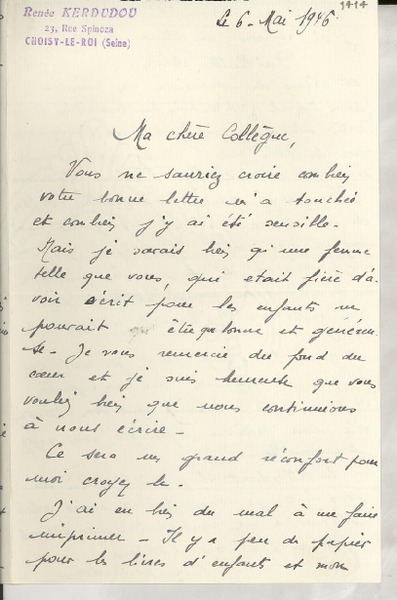 Renée KERDUDOU
23, Rue Spinoza
CHOISY-LE-ROI (Seine)
1414
Le 6 - Mai 1946.
Ma chère Collègue,
Vous ne sauriez croire combien
votre bonne lettre m'a touchée
et combien j'y ai été sensible.
Mais je savais bien qu'une femme
telle que vous, qui était fière d'a-
voir écrit pour les enfants ne
pouvait être que bonne et généreu-
se - Je vous remercie du fond du
cœur et je suis heureuse que vous
vouliez bien que nous continuions
à nous écrire -
Ce sera un grand réconfort pour
moi croyez le -
J'ai eu bien du mal à me faire
imprimer - Il y a peu de papier
pour les livres d'enfants et mon